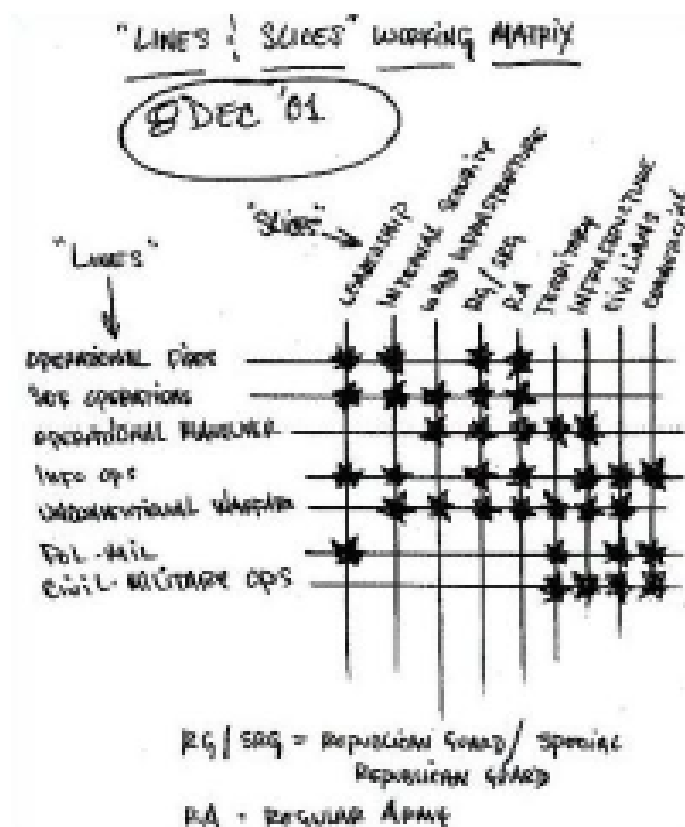 "LINES & SLICES" WORKING MATRIX
8 DEC '01
"SLICES"
LEADERSHIP
INTERNAL SECURITY
WMD INFRASTRUCTURE
RG/SRG
RA
TERRITORY
INFRASTRUCTURE
CIVILIANS
COMMERCIAL
"LINES"
OPERATIONAL FIRES
SOF OPERATIONS
OPERATIONAL MANEUVER
INFO OPS
UNCONVENTIONAL WARFARE
POL-MIL
CIVIL-MILITARY OPS
RG/SRG = REPUBLICAN GUARD/SPECIAL
REPUBLICAN GUARD
RA = REGULAR ARMY